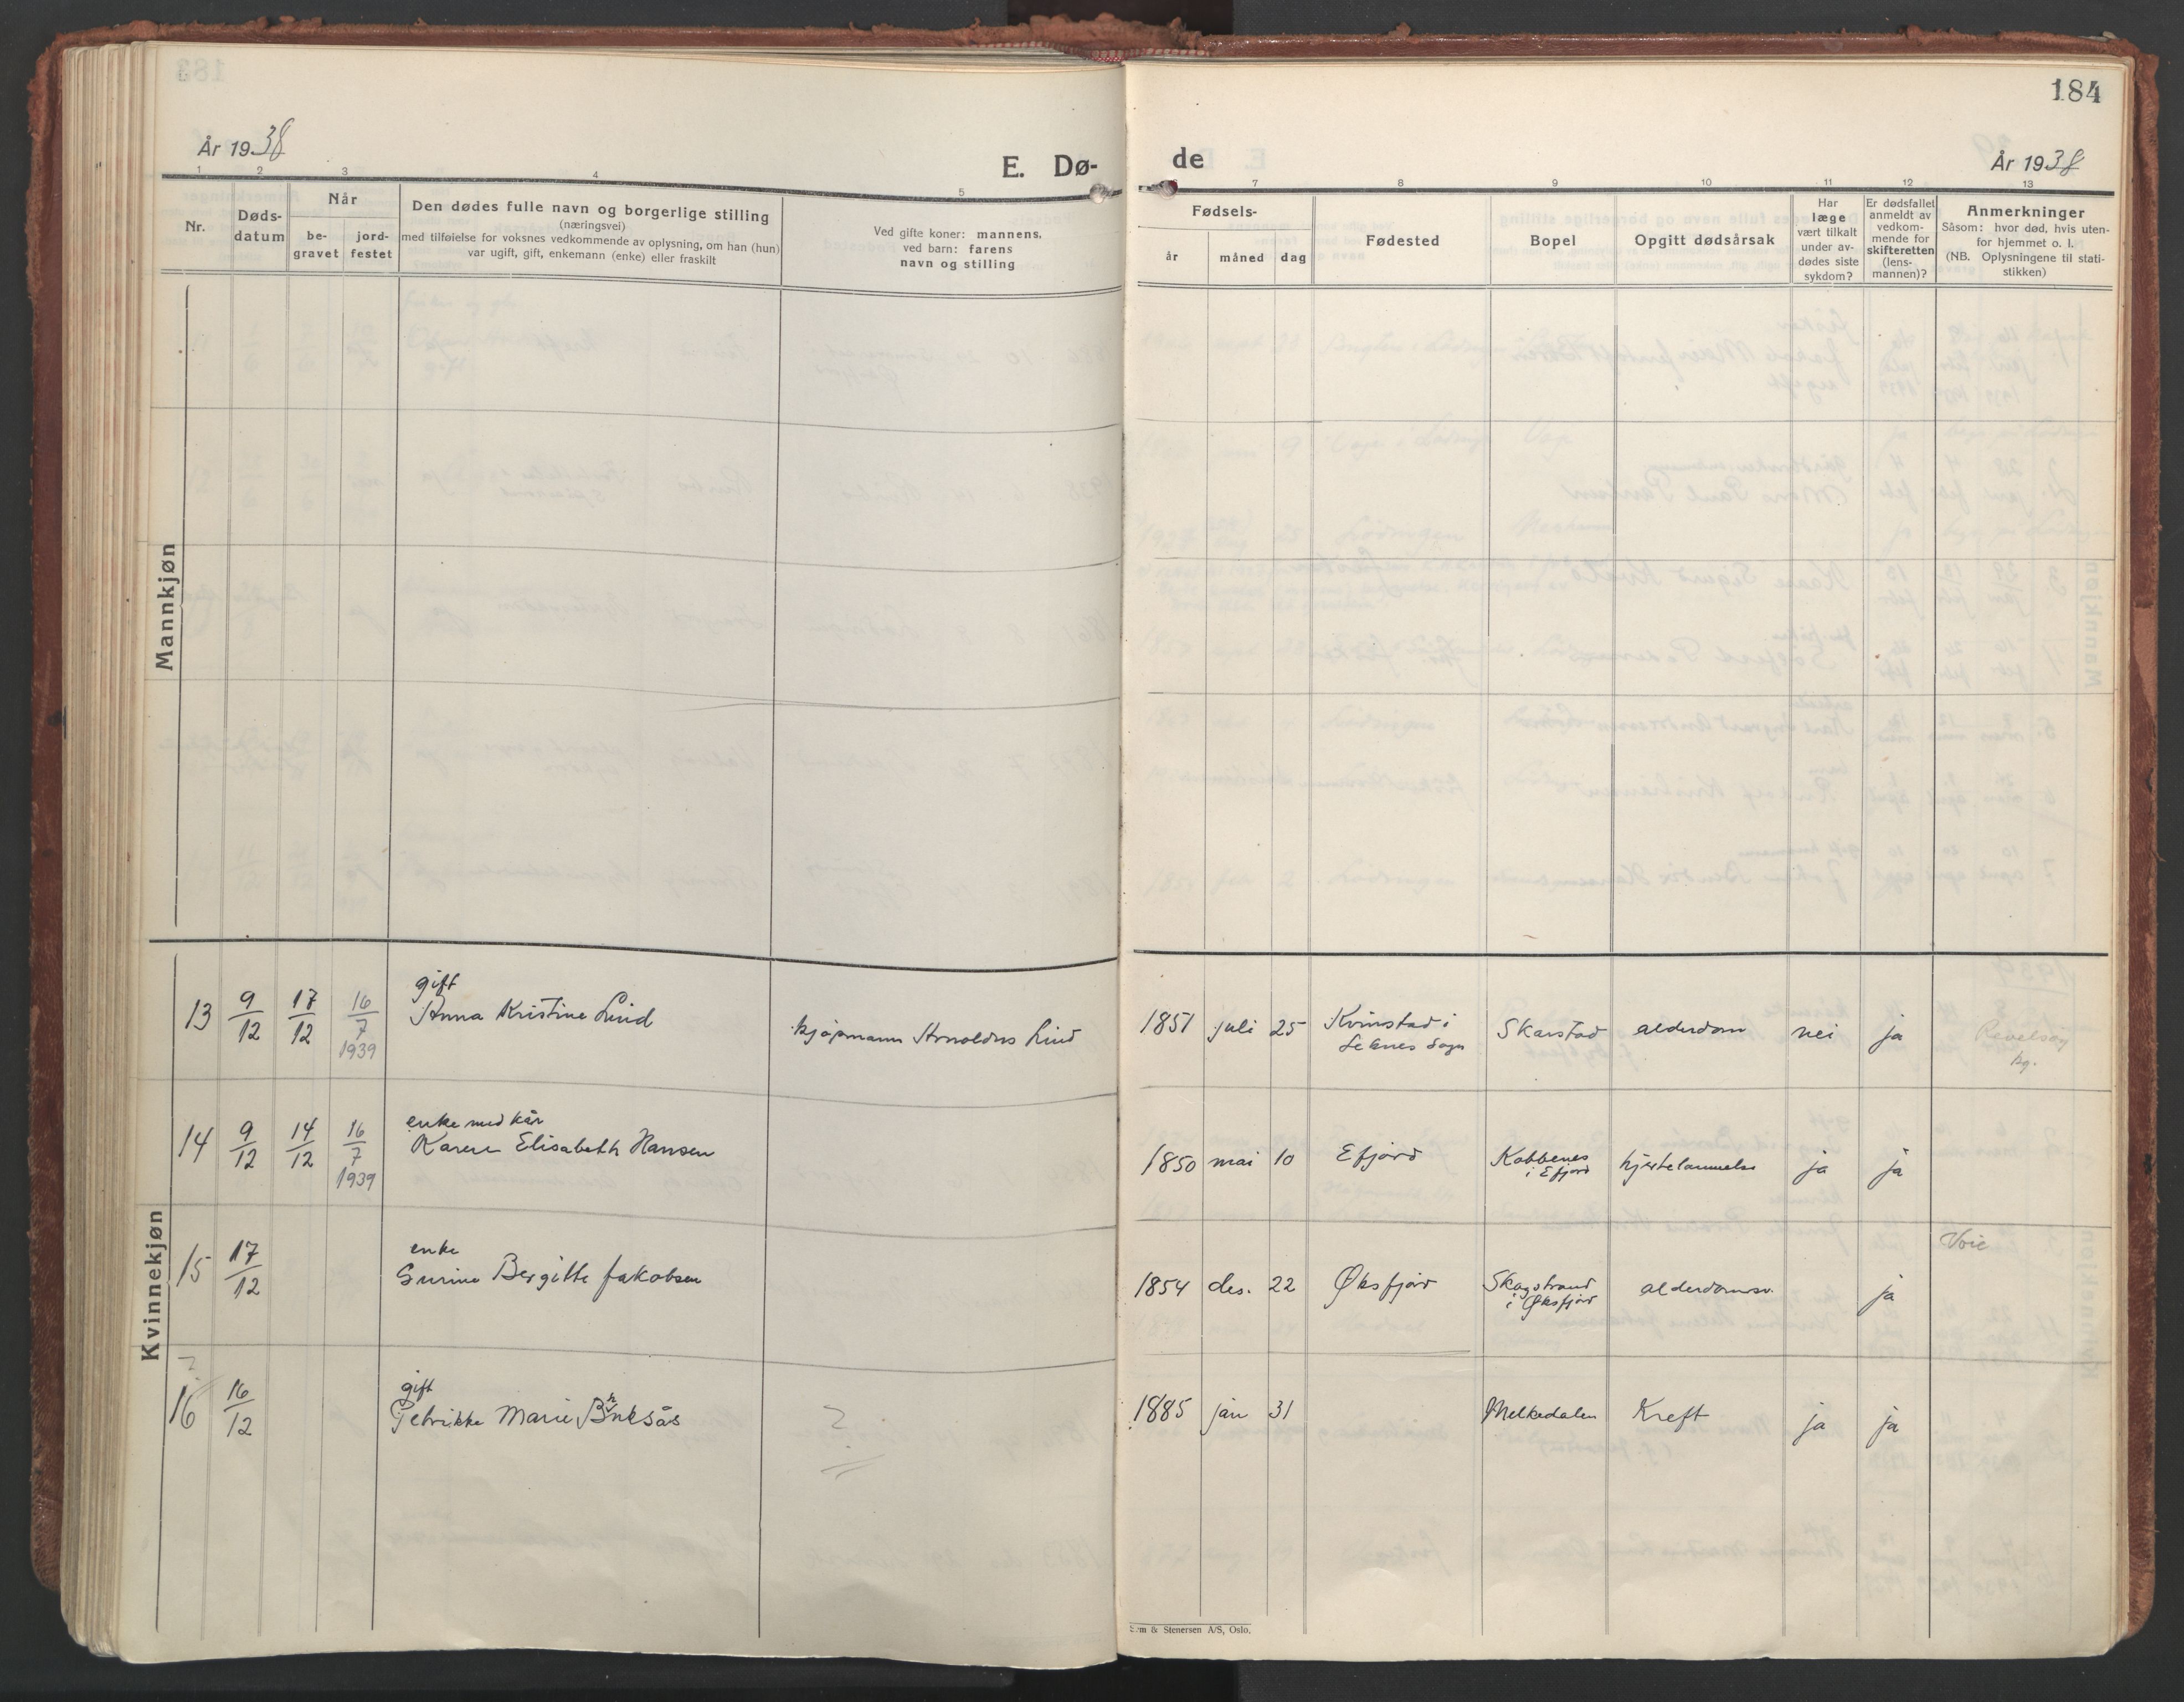 184
År 1938
E. Dø-
de
År 1938
1 2 3 4 5 7 8 9 10 11 12 13
Nr.
Døds-
datum
Når
be-
gravet
jord-
festet
Den dødes fulle navn og borgerlige stilling
(næringsvei)
med tilføielse for voksnes vedkommende av oplysning, om han (hun)
var ugift, gift, enkemann (enke) eller fraskilt
Ved gifte koner: mannens,
ved barn: farens
navn og stilling
Fødsels-
år
måned
dag
Fødested
Bopel
Opgitt dødsårsak
Har
læge
vært tilkalt
under av-
dødes siste
sykdom?
Er dødsfallet
anmeldt av
vedkom-
mende for
skifteretten
(lens-
mannen)?
Anmerkninger
Såsom: hvor død, hvis uten-
for hjemmet o. l.
(NB. Oplysningene til stati-
stikken)
Mannkjøn
Kvinnekjøn
13 9/12 17/12 16/7 1939
gift
Anna Kristine Lind
kjøpmann Arnoldus Lind
1851 juli 25
Kvinstad i
Leknes Sogn
Skarstad
alderdom
nei
ja
14 9/12 14/12 16/7 1939
enke med kår
Karen Elisabeth Hansen
1850 mai 10
Efjord
Kobbenes
i Efjord
hjertelammelse
ja
ja
15 17/12
enke
Bergitte Jakobsen
1854 des. 22
Øksfjord
Skogstrand
i Øksfjord
ja
Voie
?
16 16/12
gift
Petrikke Marie
?
1885 jan 31
Melkedalen
Kreft
ja
ja
& Stenersen A/S, Oslo.